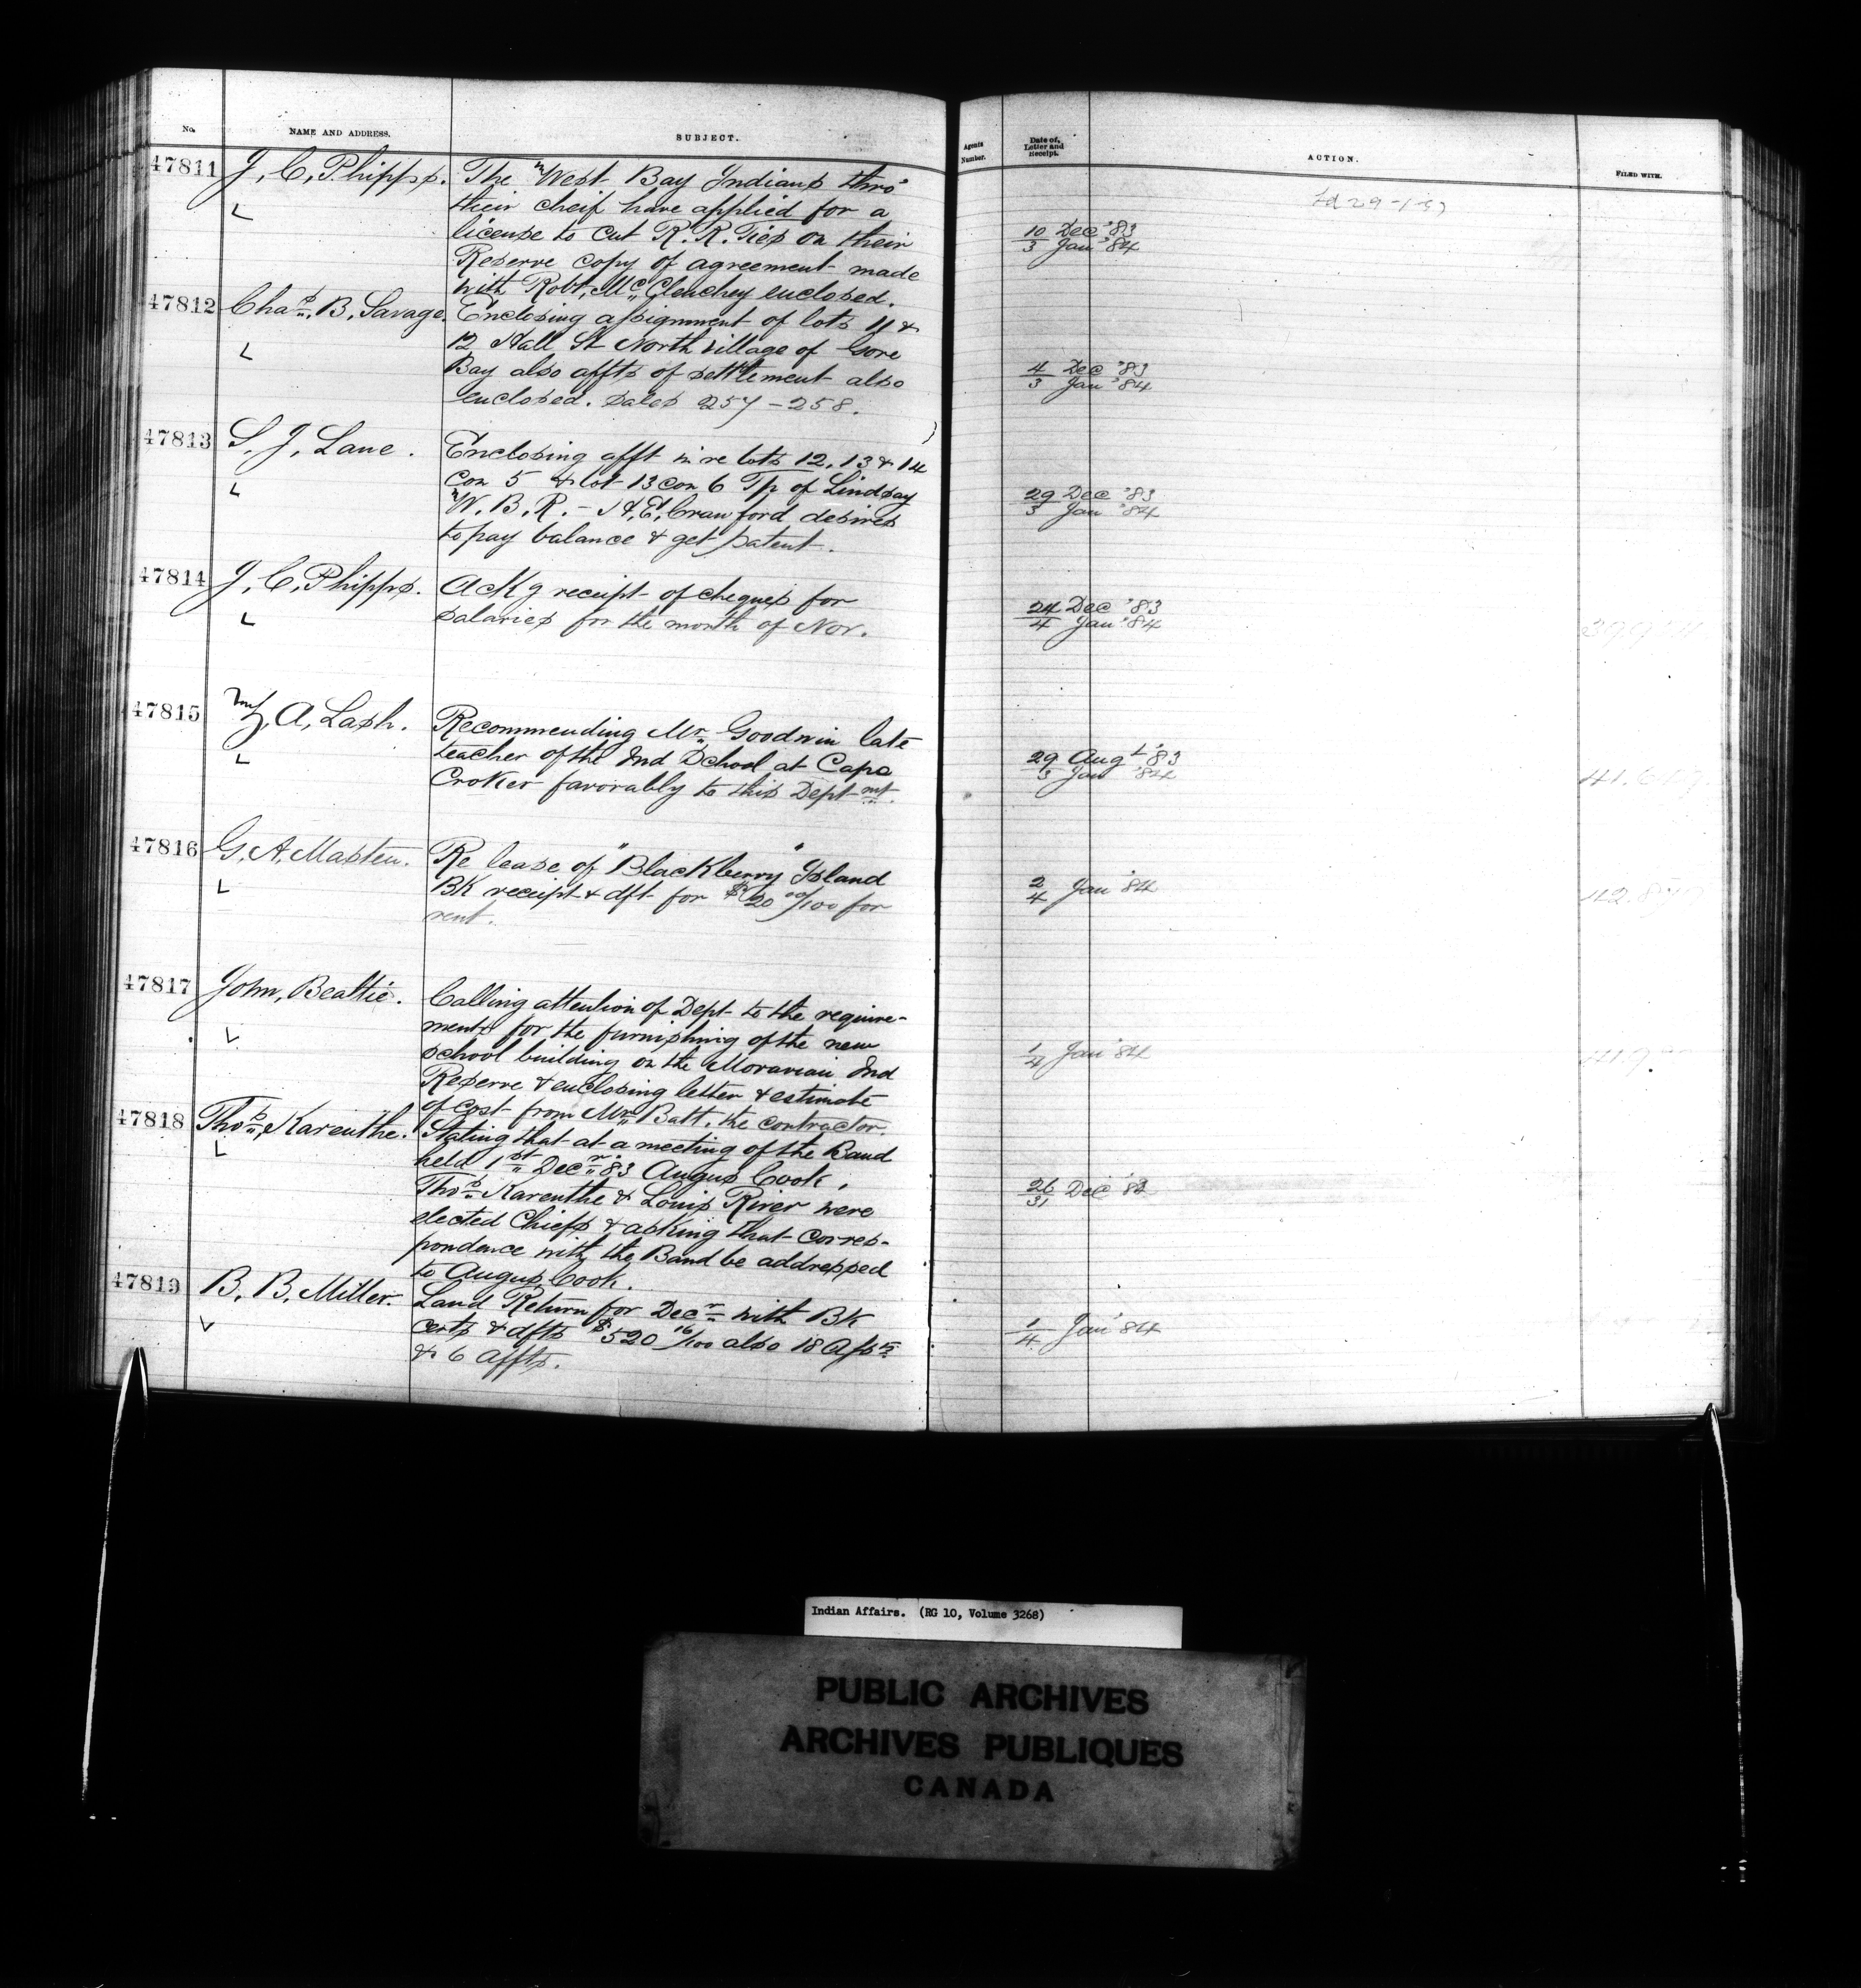 No. NAME AND ADDRESS. SUBJECT. Agents Number. Date of, Letter and Receipt. ACTION. FILED WITH.
47811 J, C, Phipps. The "West Bay Indians thro'
their cheif have applied for a
license to cut R. R. Ties on their
Reserve copy of agreement made
with Robt, Mc Clenchey enclosed.
10 Dec '83
3 Jan '84
47812 Chas. B. Savage. Enclosing assignment of lots 11 &
12 Hall St North Village of Gore
Bay also affts of settlement also
enclosed. Sales 257 - 258.
4 Dec '83
3 Jan '84
47813 S. J, Lane. Enclosing afft in re lots 12, 13 & 14
con 5 & lot 13 con 6 Tp of Lindsay
"W. B. R. - H, E, Crawford desires
to pay balance & get patent.
29 Dec '83
3 Jan '84
47814 J, C, Phipps. Ackg receipt of cheques for
salaries for the month of Nov.
24 Dec '83
4 Jan '84
47815 A, Lash. Recommending Mr. Goodwin late
teacher of the Ind School at Cape
Croker favorably to this Deptmt.
29 Augt '83
3 Jan '84
47816 G. A, Masten. Re lease of "Blackberry" Island
BK receipt & dft for $20 00/100 for
rent.
2
4 Jan '84
47817 John, Beattie. Calling attention of Dept to the require-
ments for the furnishing of the new
school building on the Moravian Ind
Reserve & enclosing letter & estimate
of cost from Mr. Batt. the contractor.
1
4 Jan '84
47818 Thos. Karenthe. Stating that at a meeting of the Band
held 1st Decr. 83 Angus Cook,
Thos. Karenthe & Louis River were
elected Chiefs & asking that corres-
pondence with the Band be addressed
to Angus Cook.
26
31 Dec
47819 B. B. Miller. Land Return for Decr with BK
certs & dfts $520 16/100 also 18 Apns
& 6 Affts.
1
4 Jan '84
Indian Affairs. (RG 10, Volume 3268)
PUBLIC ARCHIVES
ARCHIVES PUBLIQUES
CANADA